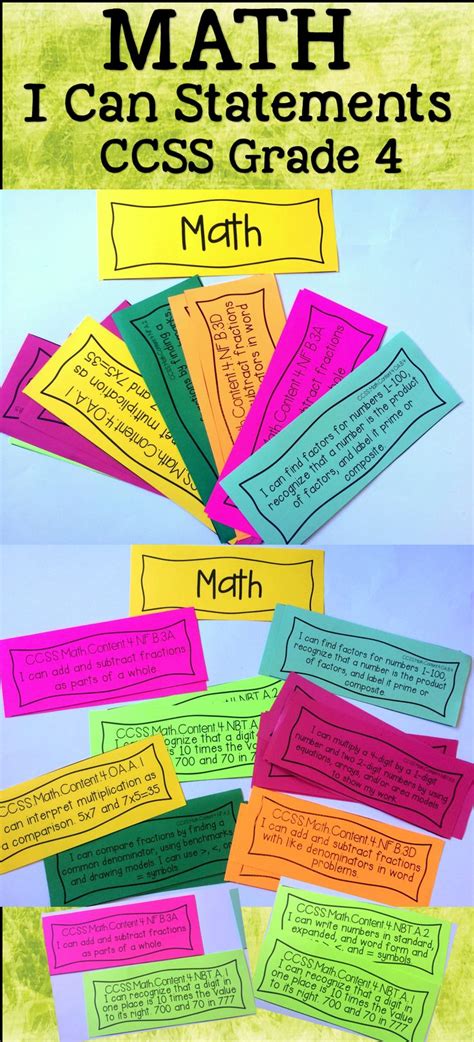 MATH
I Can Statements
CCSS Grade 4
Math
CCSS.Math.Content.4.OA.A.1
multiplication as
and 7x5=35
Content.4.NF.B.3D
subtract fractions
in word
Content.4.NF.B.3A
subtract fractions
whole
I can find factors for numbers 1-100,
recognize that a number is the product
of factors, and label it prime or
composite.
Math
CCSS.Math.Content.4.NF.B.3A
I can add and subtract fractions
as parts of a whole.
I can find factors for numbers 1-100,
recognize that a number is the product
of factors, and label it prime or
composite.
CCSS.Math.Content.4.NBT.A.2
recognize that a digit in
is 10 times the value
700 and 70 in 777
I can multiply a 4-digit by a 1-digit
number and two 2-digit numbers by using
equations, arrays, and/or area models
to show my work.
CCSS.Math.Content.4.OA.A.1
can interpret multiplication as
a comparison. 5x7 and 7x5=35
I can compare fractions by finding a
common denominator, using benchmarks,
and drawing models. I can use >, <, or
= symbols.
CCSS.Math.Content.4.NF.B.3D
I can add and subtract fractions
with like denominators in word
problems.
CCSS.Math.Content.4.NF.B.3A
I can add and subtract fractions
as parts of a whole.
CCSS.Math.Content.4.NBT.A.2
I can write numbers in standard,
expanded, and word form and
<, and = symbols.
CCSS.Math.Content.4.NBT.A.1
I can recognize that a digit in
one place is 10 times the value
to its right. 700 and 70 in 777
CCSS.Math.Content.4.NBT.A.1
I can recognize that a digit in
one place is 10 times the value
to its right. 700 and 70 in 777